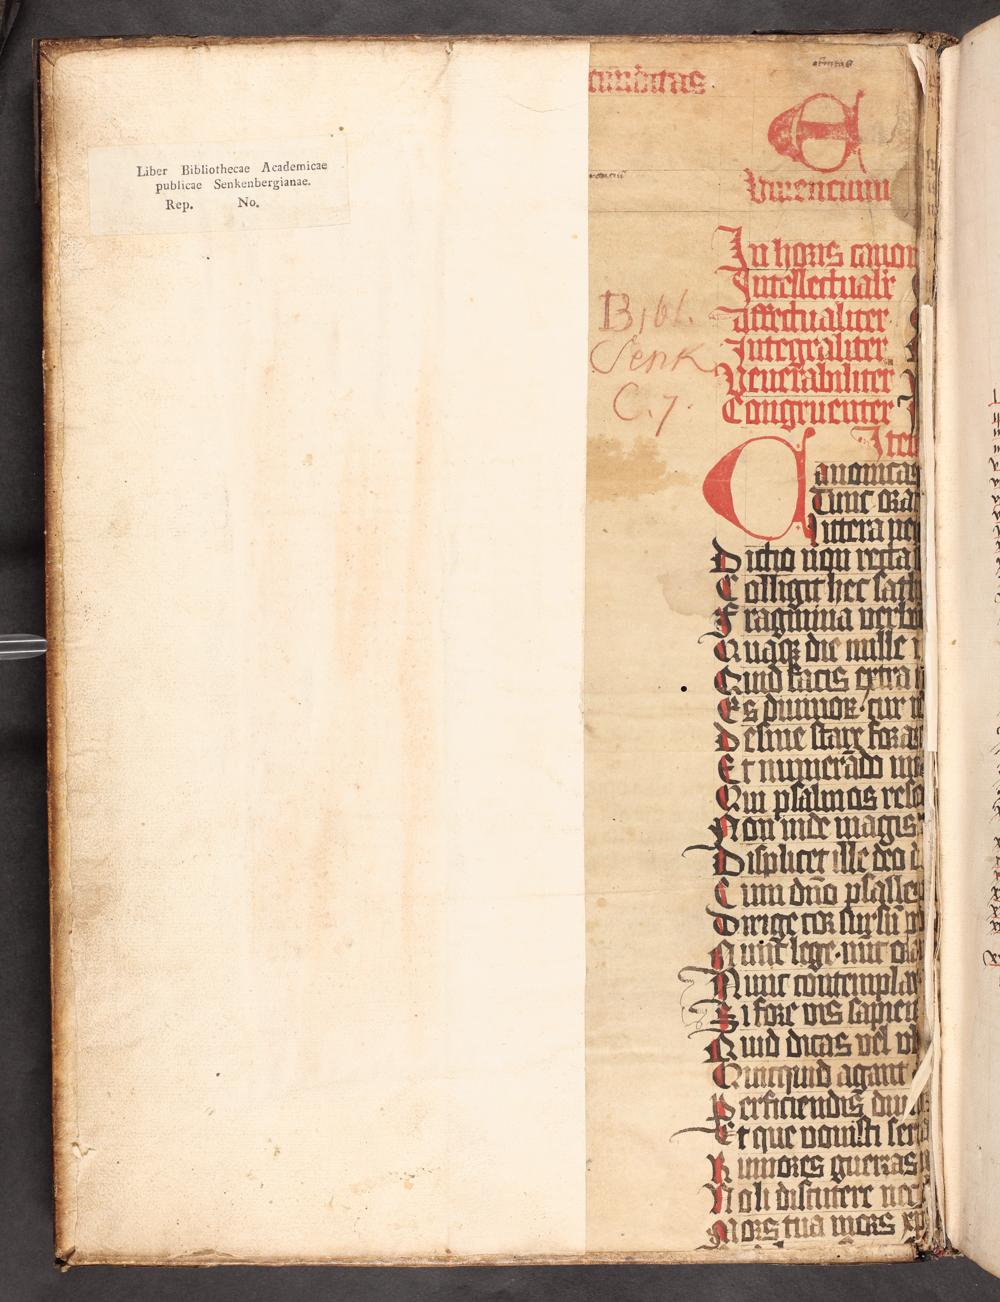 Liber Bibliothecae Academicae
publicae Senkenbergianae.
Rep. No.
Bibl.
Senk
C. 7.
Viuencium
In horis canon
Intellectualr
Affectualiter
Integraliter
Venerabiliter
Congruenter
Item
Canonicas
Tunc ora
Dictio non recta
Colligit hec sath
Fragmina verbo
Quaqȝ die mille
Quid facis extra
Desine stare foras
Et numerādo
Qui psalmos reso
Non inde magis
Displicet ille deo
Cum dn̄o psalles
Dirige cor sursū
Nunc lege nūc ora
Nunc contempla
Si fore vis sapien
Quid dicas vel vb
Quicquid agant
Perficiendis
Et que vouisti
Rumores guerras
Noli discutere nec
Mors tua mors xp